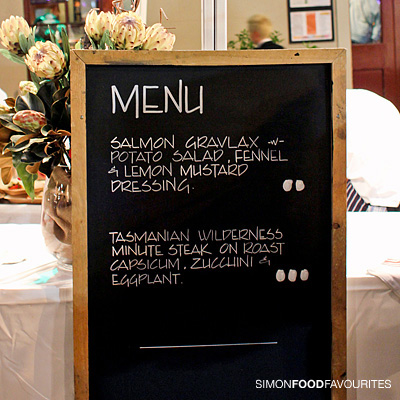 MENU
SALMON GRAVLAX -W-
POTATO SALAD, FENNEL
& LEMON MUSTARD
DRESSING.
TASMANIAN WILDERNESS
MINUTE STEAK ON ROAST
CAPSICUM, ZUCCHINI &
EGGPLANT.
SIMONFOODFAVOURITES